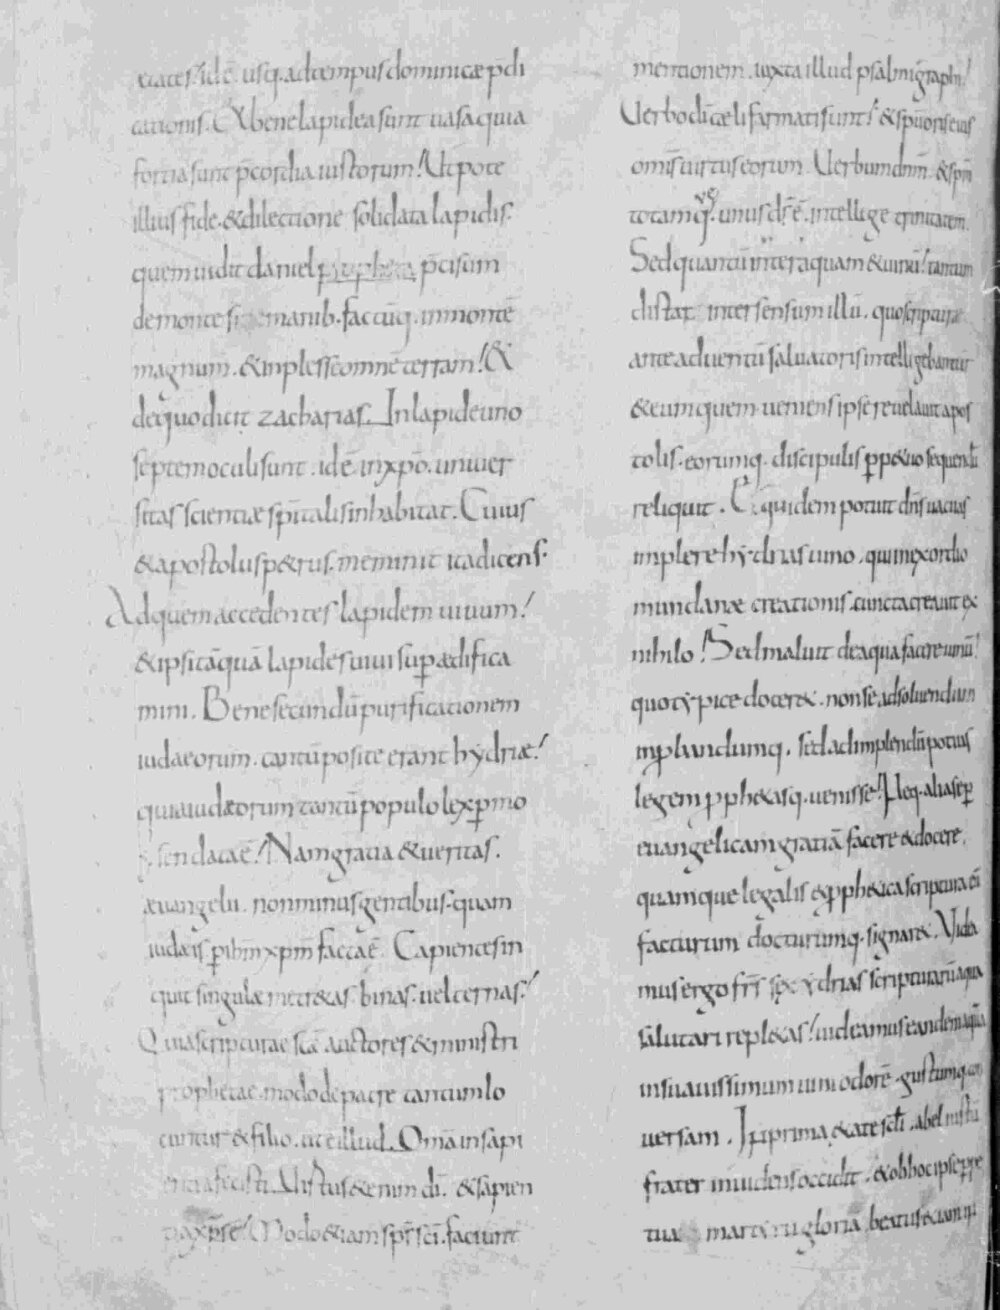 ętates. idē usq. ad tempus dominicæ p̄di
cationis. Et bene lapidea sunt uasa quia
fortia sunt p̄cordia iustorum! Utpote
illius fide. & dilectione solidata lapidis.
quem uidit daniel propheta p̄cisum
de monte sine manib. factūq. in montē
magnum. & inplesse omnē terram! &
de quo dicit zacharias. In lapide uno
septem oculi sunt. idē in xpō. uniuer
sitas scientiæ sp̄italis inhabitat. Cuius
& apostolus p&rus. meminit ita dicens.
Ad quem accedentes lapidem uiuum!
& ipsi tāquā lapides uiui sup̱ ædifica
mini. Bene secundū purificationem
iudaeorum. tantū posite erant hydriæ!
quia iudæorum tantū populo lex p̱ mo
sen data ē! Nam gratia & ueritas.
æuangelii. non minus gentibus. quam
iudæis p̱ ihm̄ xpm̄ facta ē. Capientes in
quit singulæ metr&as. binas. uel ternas!
Quia scripturae scāe auctores & ministri
prophetae. modo de patre tantum lo
cuntur & filio. ut ē illud. Omīa in sapi
entia fecisti. Uirtus & enim dī. & sapien
tia xp̄s ē! Modo &iam sps̄ scī. faciunt
mentionem. iuxta illud psalmigraphi!
Uerbo dn̄i cæli firmati sunt! & spu oris eius
omīs uirtus eorum. Uerbum dnm̄. & spm̄
totamq. unus ds̄ ē. intellige trinitatem.
Sed quantū inter aquam & uinū! tantum
distat inter sensum illū. quo scripturæ
ante aduentū saluatoris intelligebantur
& eum quem ueniens ipse reuelauit apos
tolis. eorumq. discipulis p̱p&uo sequendū
reliquit. Et quidem potuit dn̄s uacuas
implere hydrias uino. qui in exordio
mundanæ creationis. cuncta creauit ex
nihilo! Sed maluit de aqua facere uinū!
quo typice docer&. non se ad soluendum
inp̱bandumq. sed ad implendū potius
legem proph&asq. uenisse! Neq. alia se p̱
euangelicam gratiā facere & docere.
quam que legalis & proph&ica scriptura eū
facturum docturumq. signar&. Uidea
mus ergo frs̄ sex ydrias scripturarū aqua
salutari repl&as! uideamus eandem aquā
in suauissimum uini odorē. gustumq. con
uersam. In prima &ate scłi. abel iustū
frater inuidens occidit. & ob hoc ipse p̱pe
tua martyrii gloria beatus &iam in